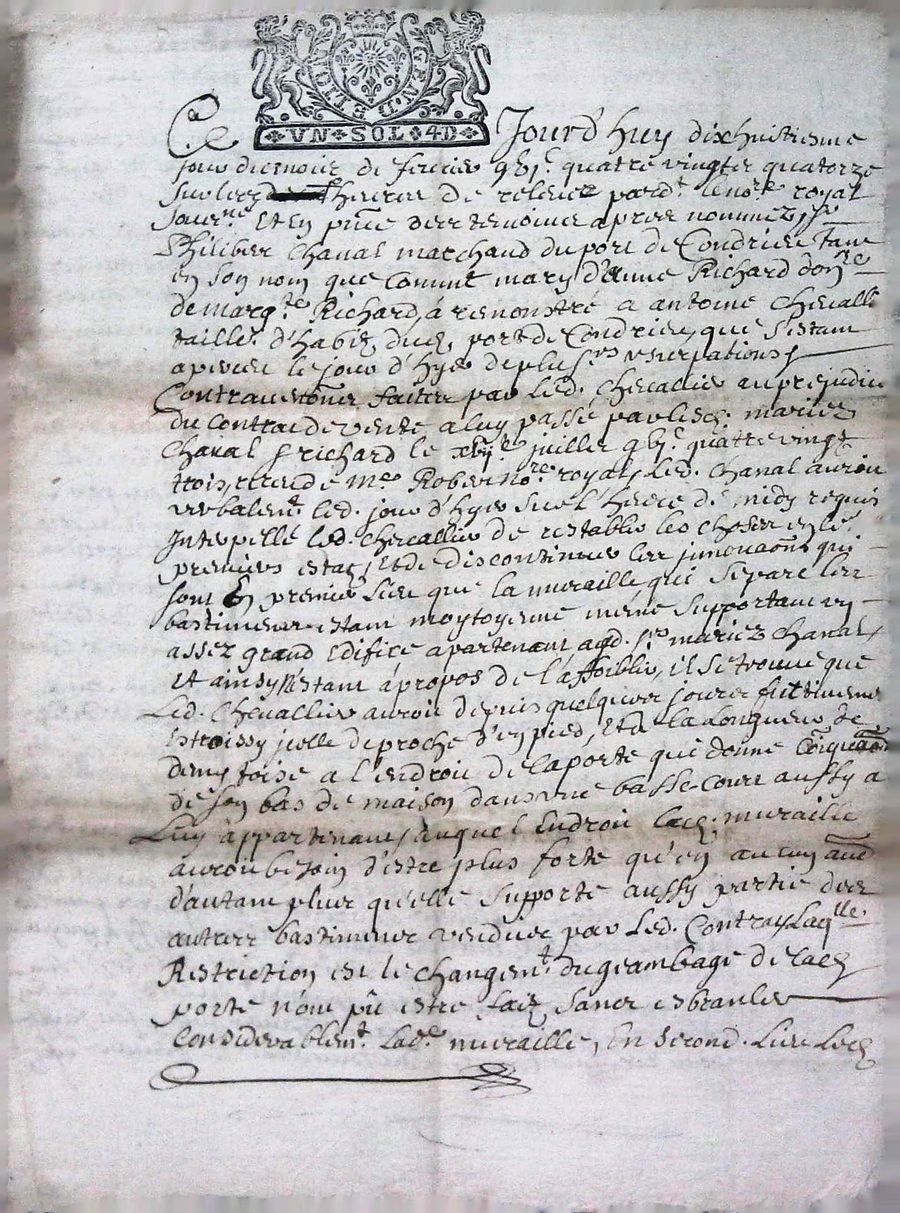 GEN. DE LION
VN SOL 4D
Ce Jourd'huy dixhuitiesme
jour du mois de fevrier quatre vingtz quatorze
sur les heures de relevez pard.t le no.re royal
sousig.né Et en p.nce des tesmoins apres nommez, s.r
Philiber Chanal marchand du port de Condrieu tant
en son nom que comme mary d'anne Richard don.re
de marg.te Richard, à remonstré a antoine Chevall.r
tailleu.r d'habiz dud. port de Condrieu, que s'estant
aperceu le jour d'hyer de plus.rs usurpations,
Contraventions faittes par led. Chevallier au prejudice
du contract de vente a luy passé par lesd. mariez
Chanal & richard le juillet quatre vingtz
trois, receu de M.e Rober no.re royal, led. Chanal auroit
verbalem.t led. jour d'hyer sur l'heure de midy requis
Interpellé led. Chevallier de restablir les choses en le.r
premiers estat, et de discontinuer les innovaons qui
sont En premier lieu que la muraille qui separe les
bastimens estant moytoyenne mème supportant un
assez grand Edifice apartenant aud. s.rs mariez Chanal,
et ainsy n'estant à propos de l'affoiblir, il se trouve que
Led. Chevallier auroit depuis quelques jours
Estroissy icelle de proche d'un pied, Et à la longueur de
demy toise a l'endroit de la porte que donne
de son bas de maison dans une basse-cour aussy a
Luy appartenant, auquel Endroit lad. muraille
auroit bezoin d'estre plus forte qu'en aucun autre
d'autant plus qu'elle supporte aussy partie des
autres bastimens vendus par led. Contrat, Laq.lle
Restriction est le changem.t du geambage de lad.
porte n'ont pû estre faitz sans esbranler
Considerablem.t lad.e muraille, En second. Lieu Led.